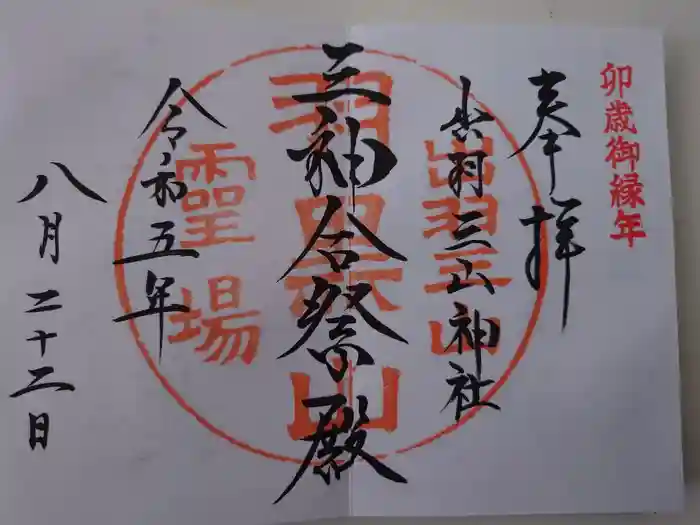 卯歳御縁年
奉拝
出羽三山神社
出羽三山
三神合祭殿
羽黒山
霊場
令和五年
八月二十二日